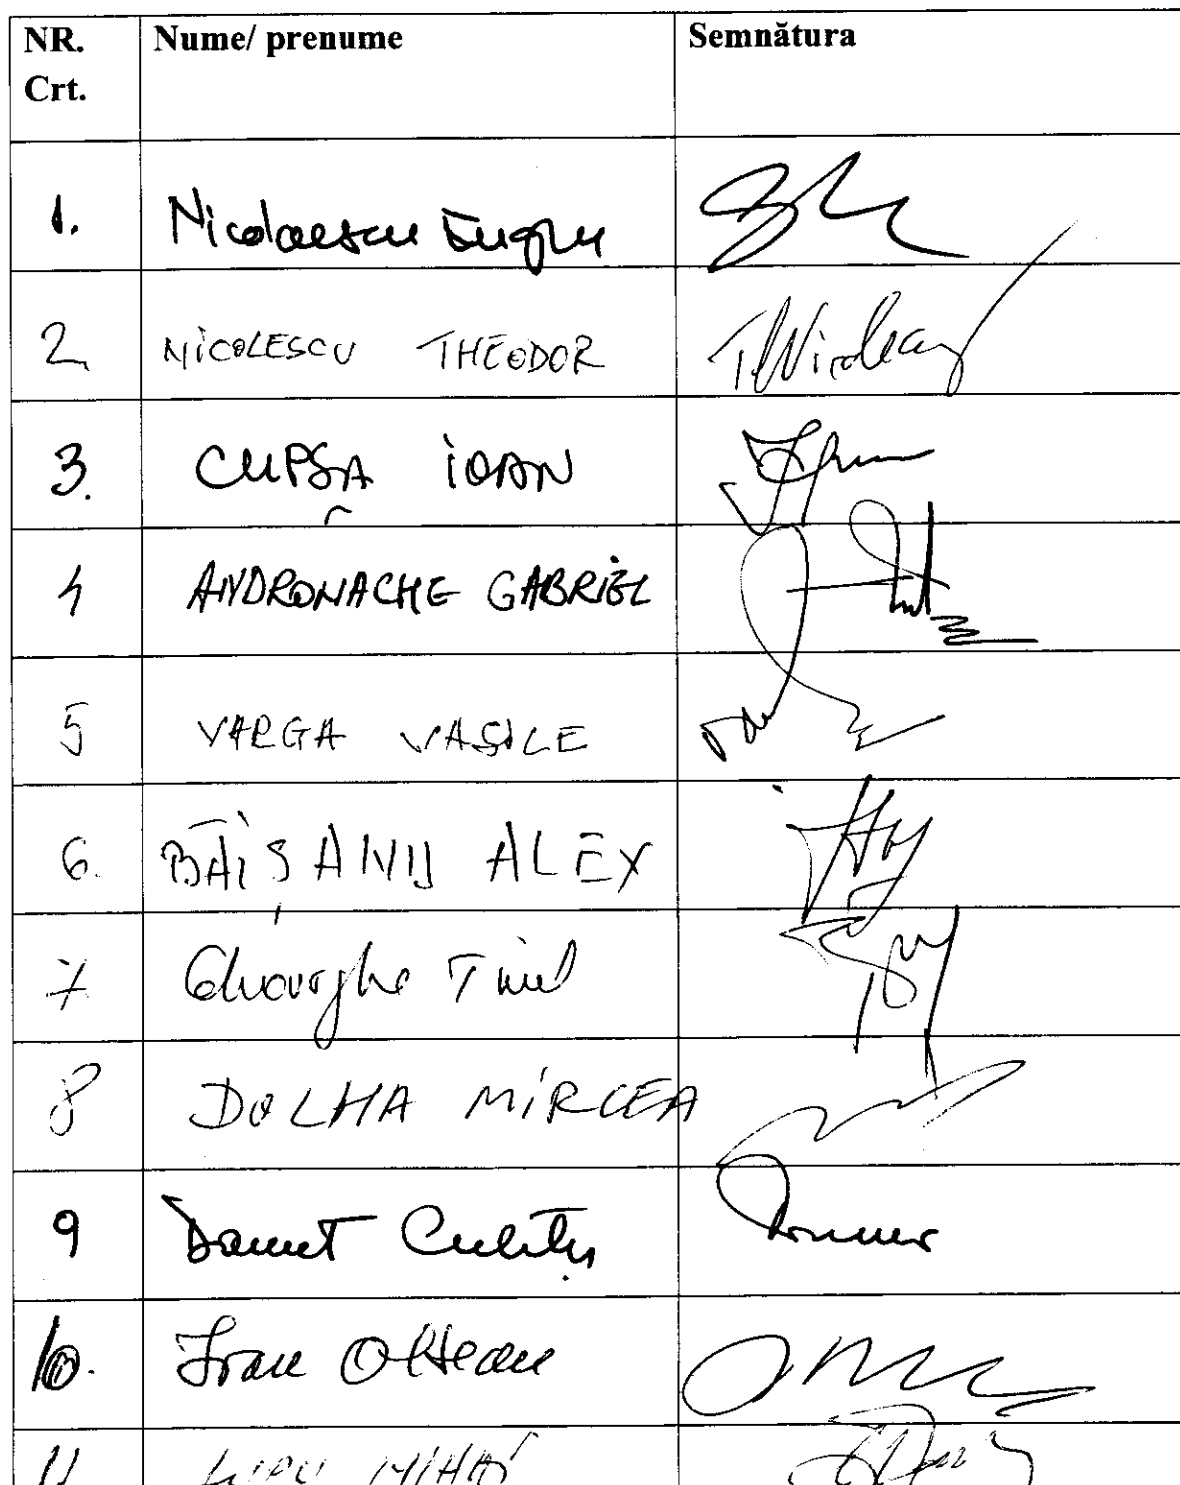 NR. Crt. Nume/ prenume Semnătura
1. Nicolaescu Eugen
2 NICOLESCU THEODOR
3. CUPȘA IOAN
4 ANDRONACHE GABRIEL
5 VARGA VASILE
6. BĂIȘANU ALEX
7 Gheorghe
8 DOLHA MIRCEA
9
10. Ioan Oltean
11 LUPU MIHAI